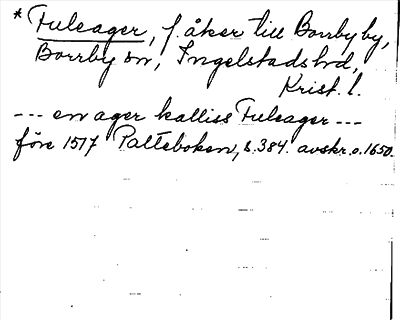 * Fuleager, f. åker till Borrby by,
Borrby sn, Ingelstads hd,
Krist. l.
--- en ager kalliss Fuleager ---
före 1517 Palteboken, s. 384. avskr. o. 1650.